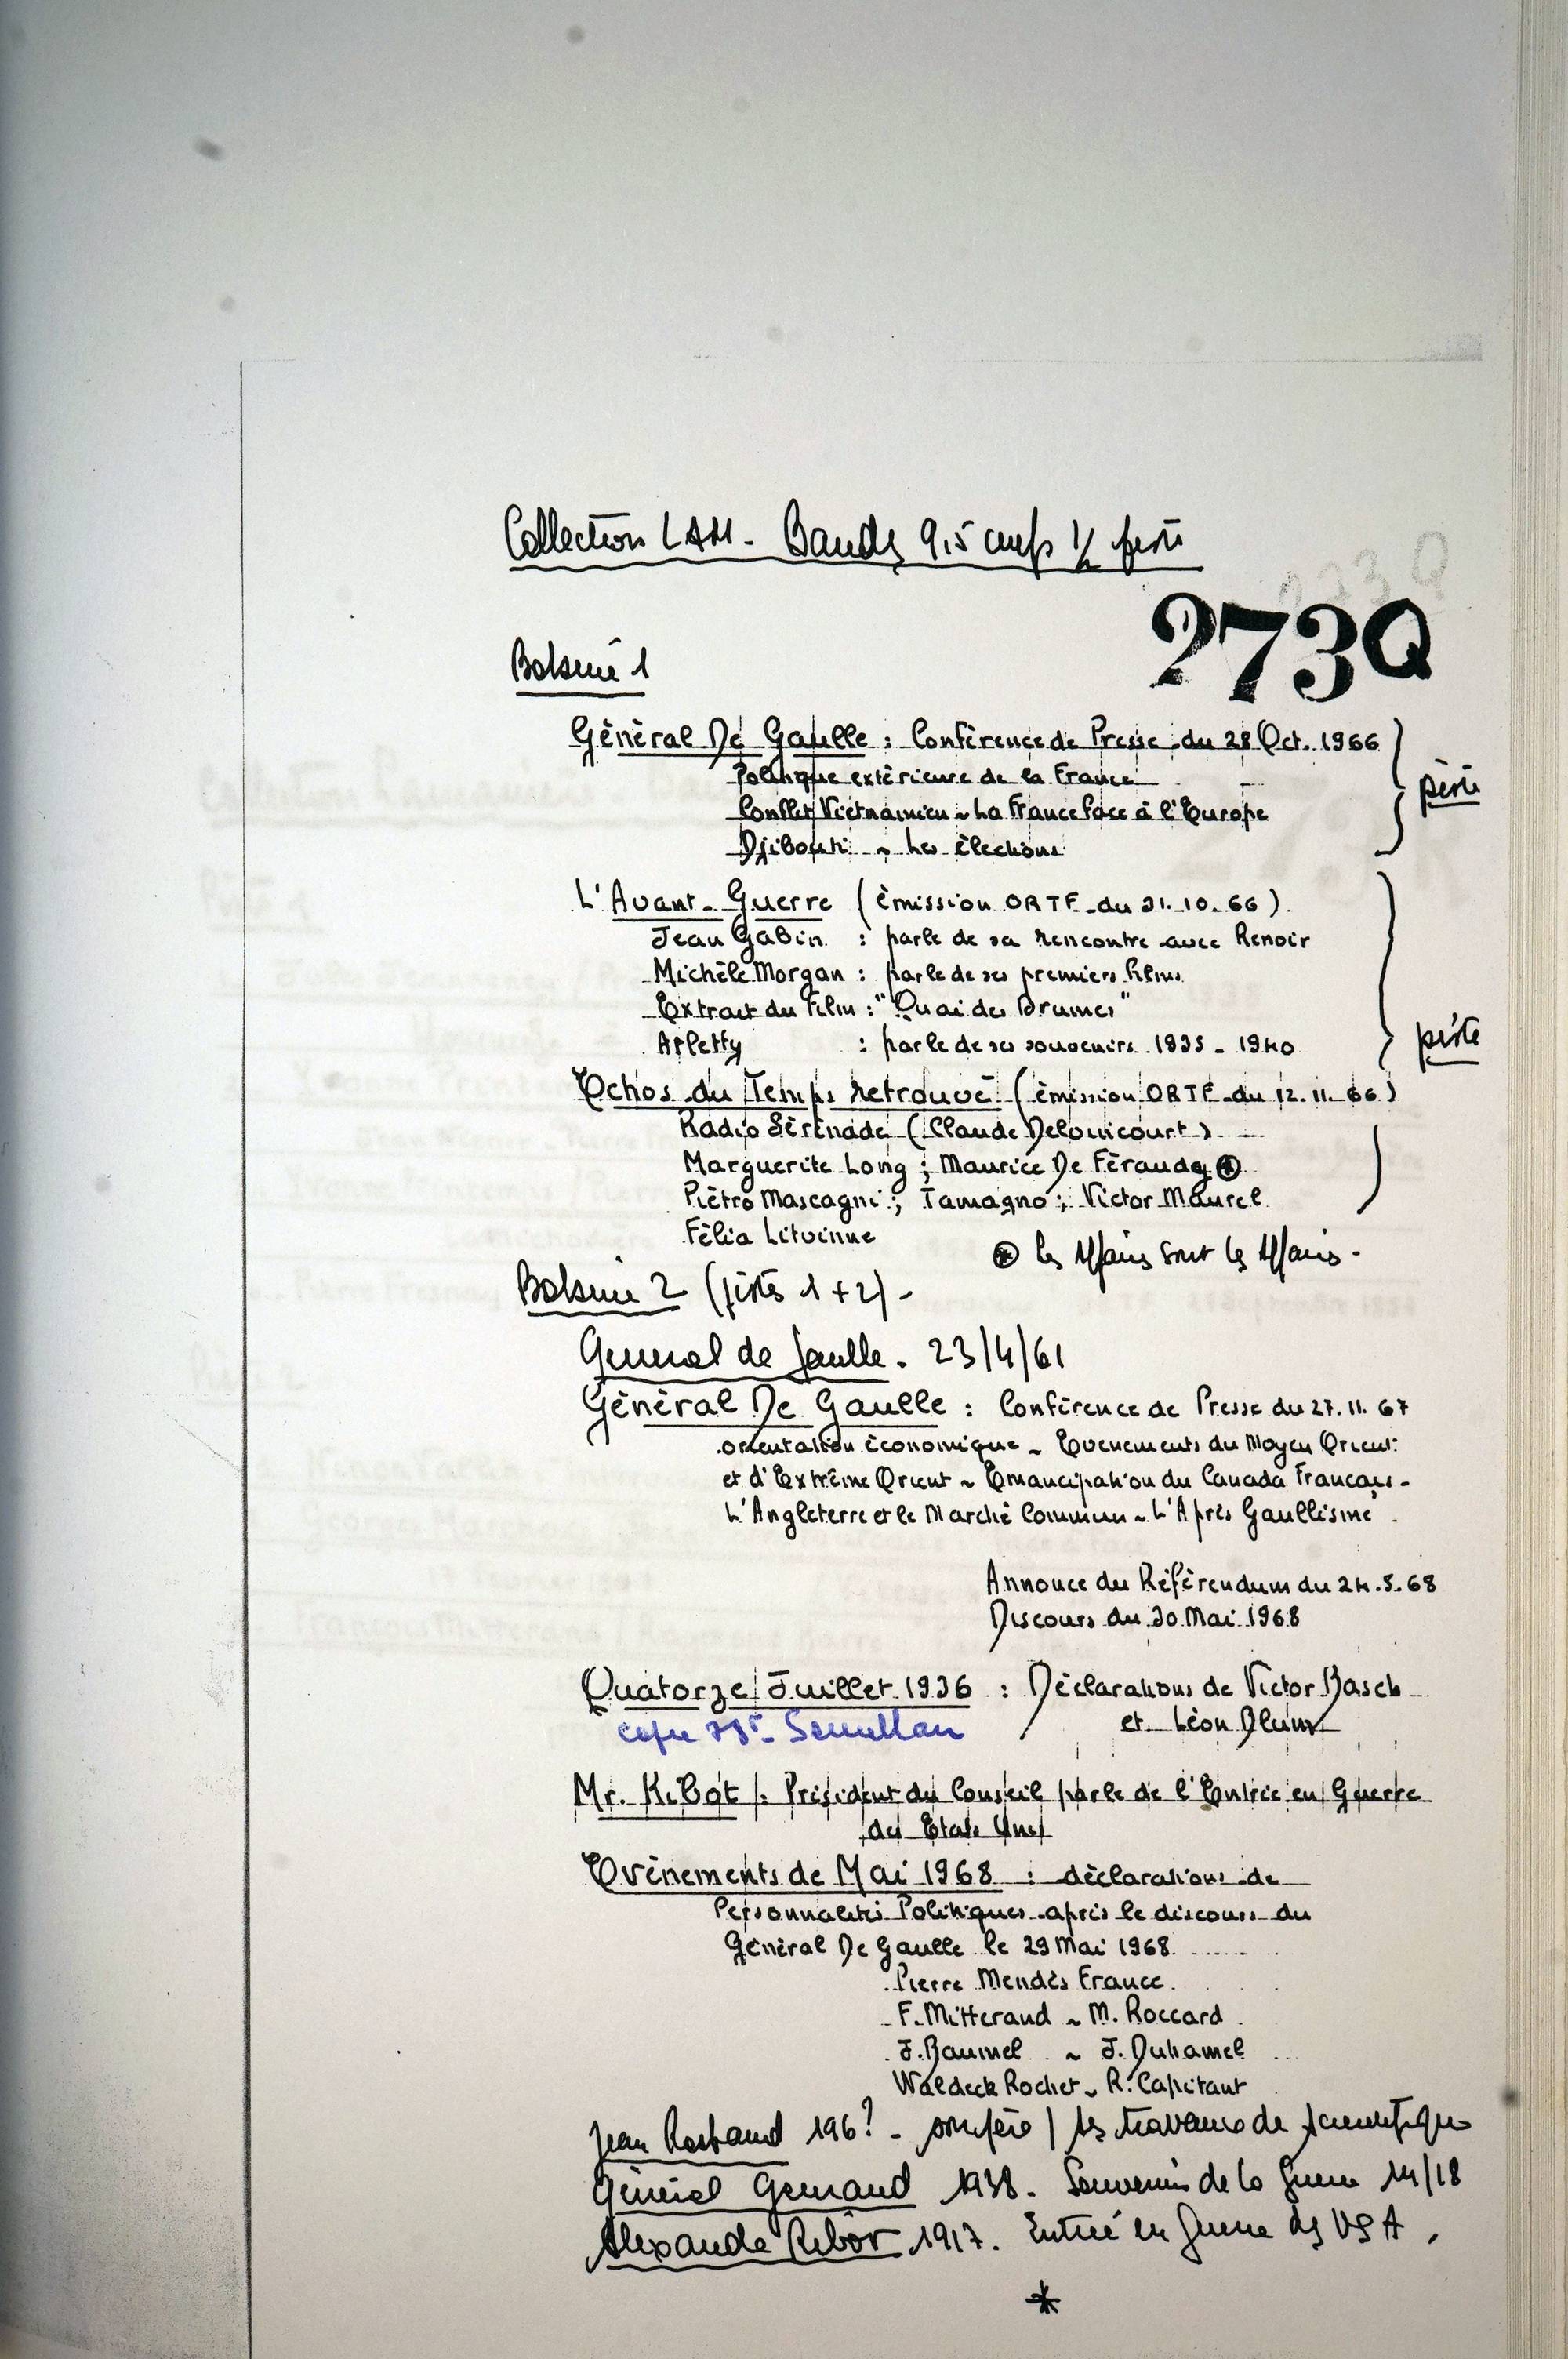 Collection LAM - Bandes 9,5 cm/s 1/2 piste
273Q
Bobine 1
Général De Gaulle : Conférence de Presse du 28 Oct. 1966
Politique extérieure de la France
Conflet Vietnamien ~ La France face à l'Europe
Djibouti ~ Les élections
piste
L'Avant-Guerre (émission ORTF du 31.10.66)
Jean Gabin : parle de sa rencontre avec Renoir
Michèle Morgan : parle de ses premiers films
Extrait du Film : "Quai des Brumes"
Arletty : parle de ses souvenirs 1935 - 1940
piste
Echos du Temps retrouvé (émission ORTF du 12.11.66)
Radio Sérénade (Claude Delouicourt)
Marguerite Long ; Maurice De Féraudy ⊛
Piétro Mascagni ; Tamagno ; Victor Maurel
Félia Litvinne
⊛ les Affaires sont les Affaires -
Bobine 2 (pistes 1+2) -
General de Gaulle - 23/4/61
Général De Gaulle : Conférence de Presse du 27.11.67
orientation économique ~ Evenements du Moyen Orient
et d'Extrême Orient ~ Emancipation du Canada Français -
L'Angleterre et le Marché Commun ~ L'Après Gaullisme.
Annonce du Référendum du 24.5.68
Discours du 30 Mai 1968
Quatorze Juillet 1936 : Déclarations de Victor Basch
et Léon Blum
copie 78t
Mr. Ribot : Président du Conseil parle de l'Entrée en Guerre
des Etats Unis
Evènements de Mai 1968 : déclarations de
Personnalités Politiques après le discours du
Général De Gaulle le 29 Mai 1968
Pierre Mendès France
F. Mitterand ~ M. Roccard
J. Baumel ~ J. Duhamel
Waldeck Rochet ~ R. Capitant
Jean Rostand 196? - son père / les travaux de scientifique
Général Gouraud 1938. Souvenirs de la Guerre 14/18
Alexandre Ribot 1917. Entrée en Guerre des USA.
*